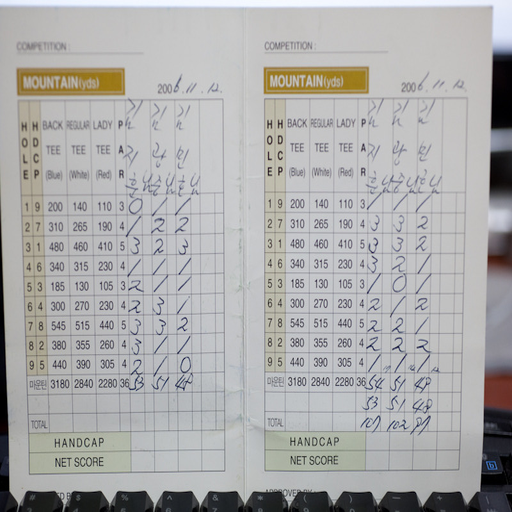 COMPETITION :
MOUNTAIN (yds)
2006. 11. 12.
HOLE HDCP BACK TEE (Blue) REGULAR TEE (White) LADY TEE (Red) PAR
1 9 200 140 110 3 0 1 1
2 7 310 265 190 4 1 2 2
3 1 480 460 410 5 3 2 3
4 6 340 315 230 4 1 1 1
5 3 185 130 105 3 2 1 1
6 4 300 270 230 4 2 3 1
7 8 545 515 440 5 3 3 2
8 2 380 355 260 4 3 1 1
9 5 440 390 305 4 2 1 0
마운틴 3180 2840 2280 36 53 51 48
TOTAL
HANDCAP
NET SCORE
COMPETITION :
MOUNTAIN (yds)
2006. 11. 12.
HOLE HDCP BACK TEE (Blue) REGULAR TEE (White) LADY TEE (Red) PAR
1 9 200 140 110 3 1 1 1
2 7 310 265 190 4 3 3 2
3 1 480 460 410 5 3 3 2
4 6 340 315 230 4 3 2 1
5 3 185 130 105 3 1 0 1
6 4 300 270 230 4 2 1 2
7 8 545 515 440 5 2 2 1
8 2 380 355 260 4 2 2 2
9 5 440 390 305 4 1 1 1
마운틴 3180 2840 2280 36 54 51 49
53 51 48
TOTAL 107 102 97
HANDCAP
NET SCORE
APPROVED BY